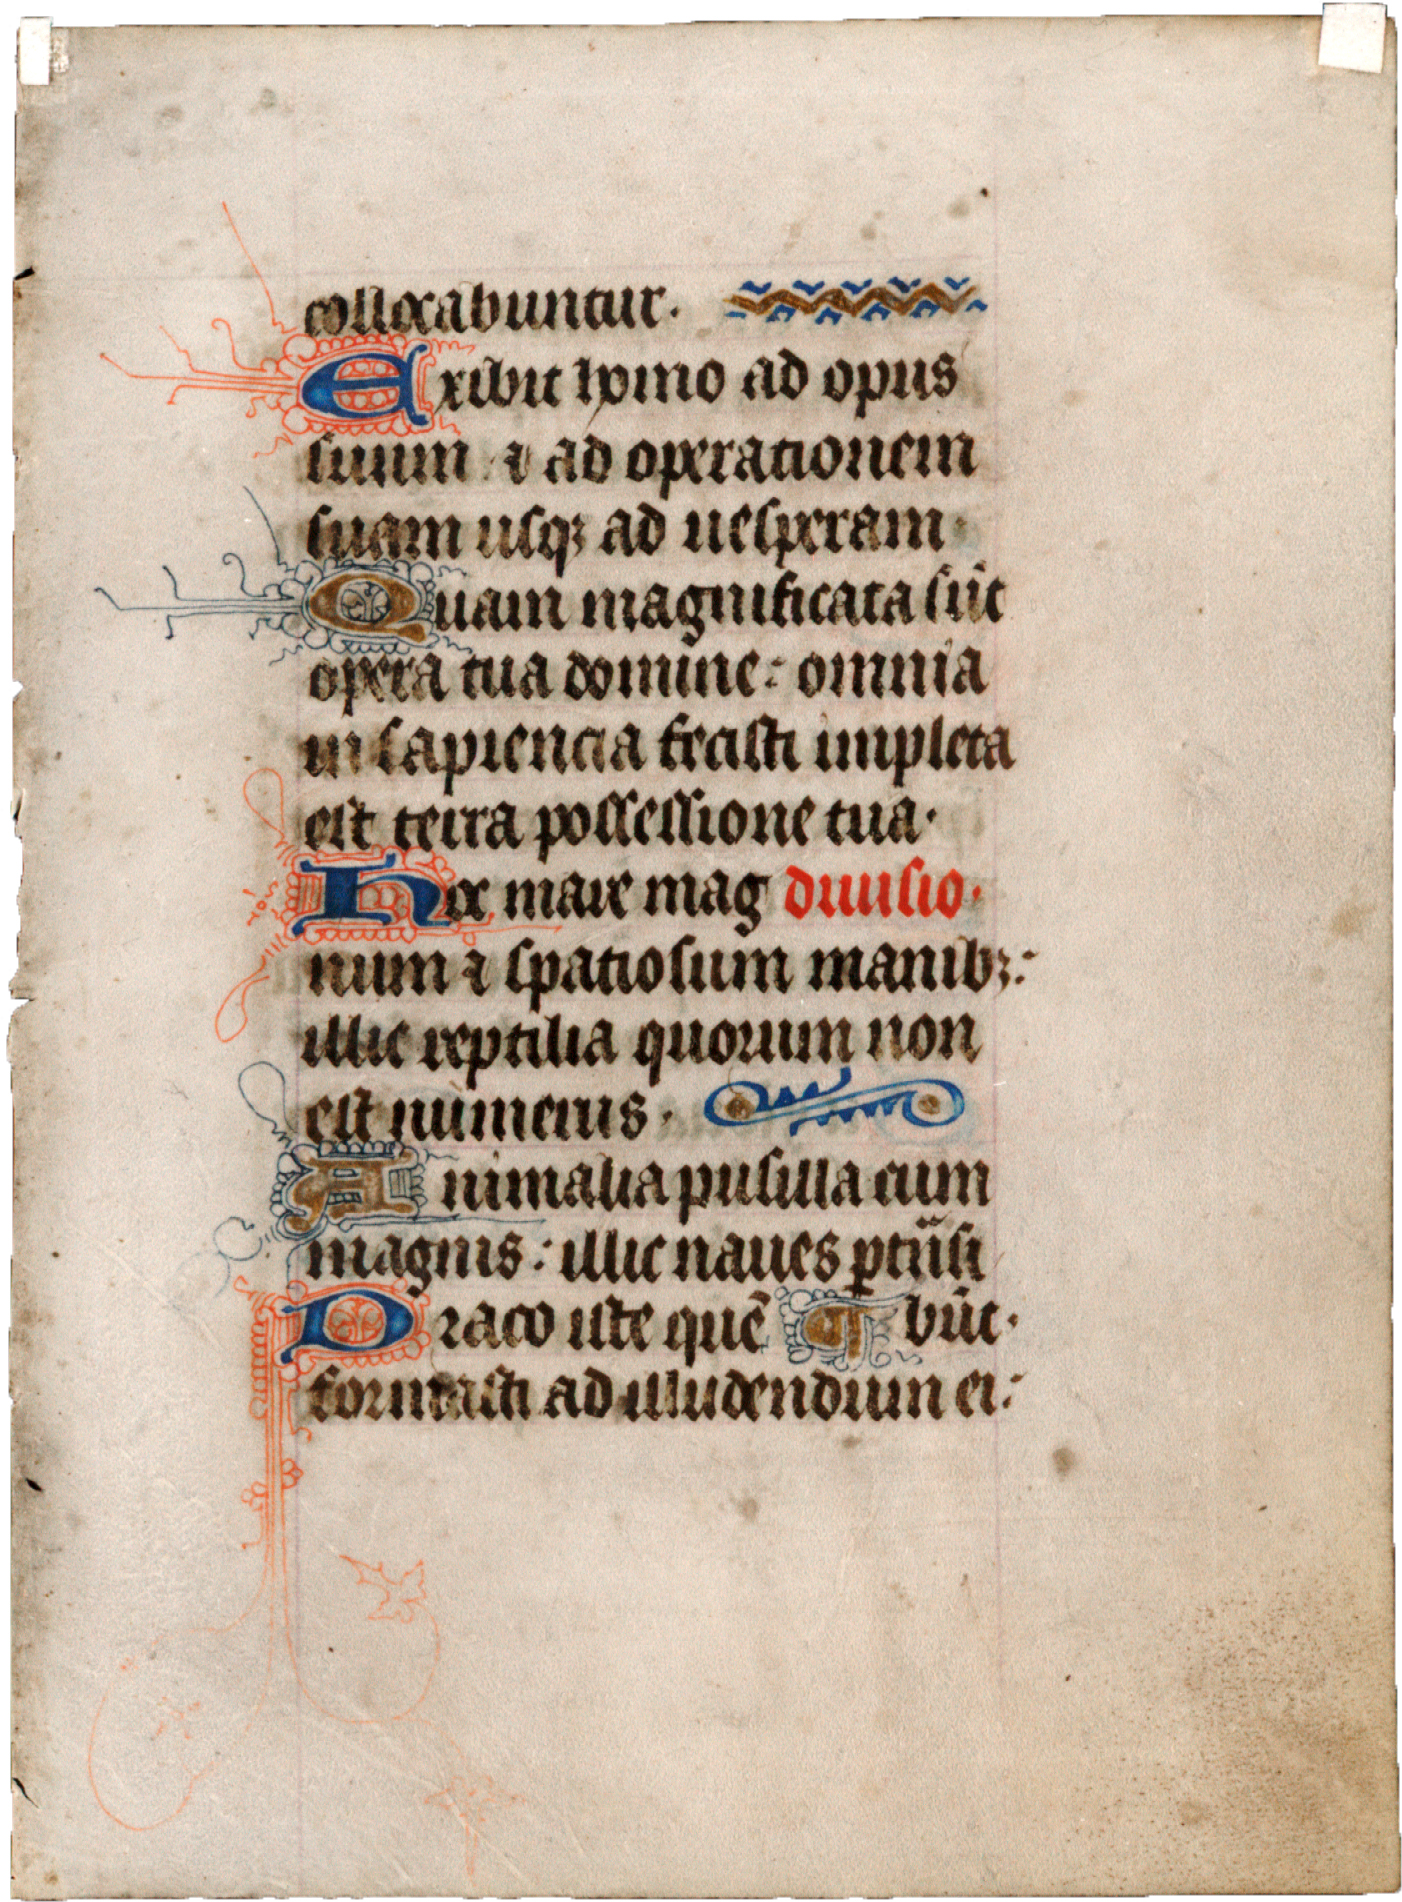 collocabuntur.
Exibit homo ad opus
suum ⁊ ad operationem
suam usqꝫ ad uesperam.
Quam magnificata sūt
opera tua domine: omnia
in sapiencia fecisti impleta
est terra possessione tua.
Hoc mare mag diuisio.
num ⁊ spatiosum manibꝫ:
illic reptilia quorum non
est numerus.
Animalia pusilla cum
magnis: illic naues ꝑtn̄si
Draco iste quē Tbūt.
formasti ad illudendum ei: